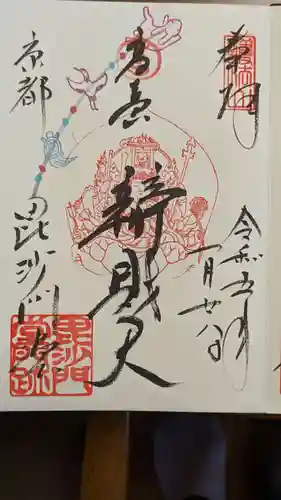 奉拝
令和五年
一月廿八日
高台
辨財天
京都
毘沙門堂
毘沙門
堂門跡